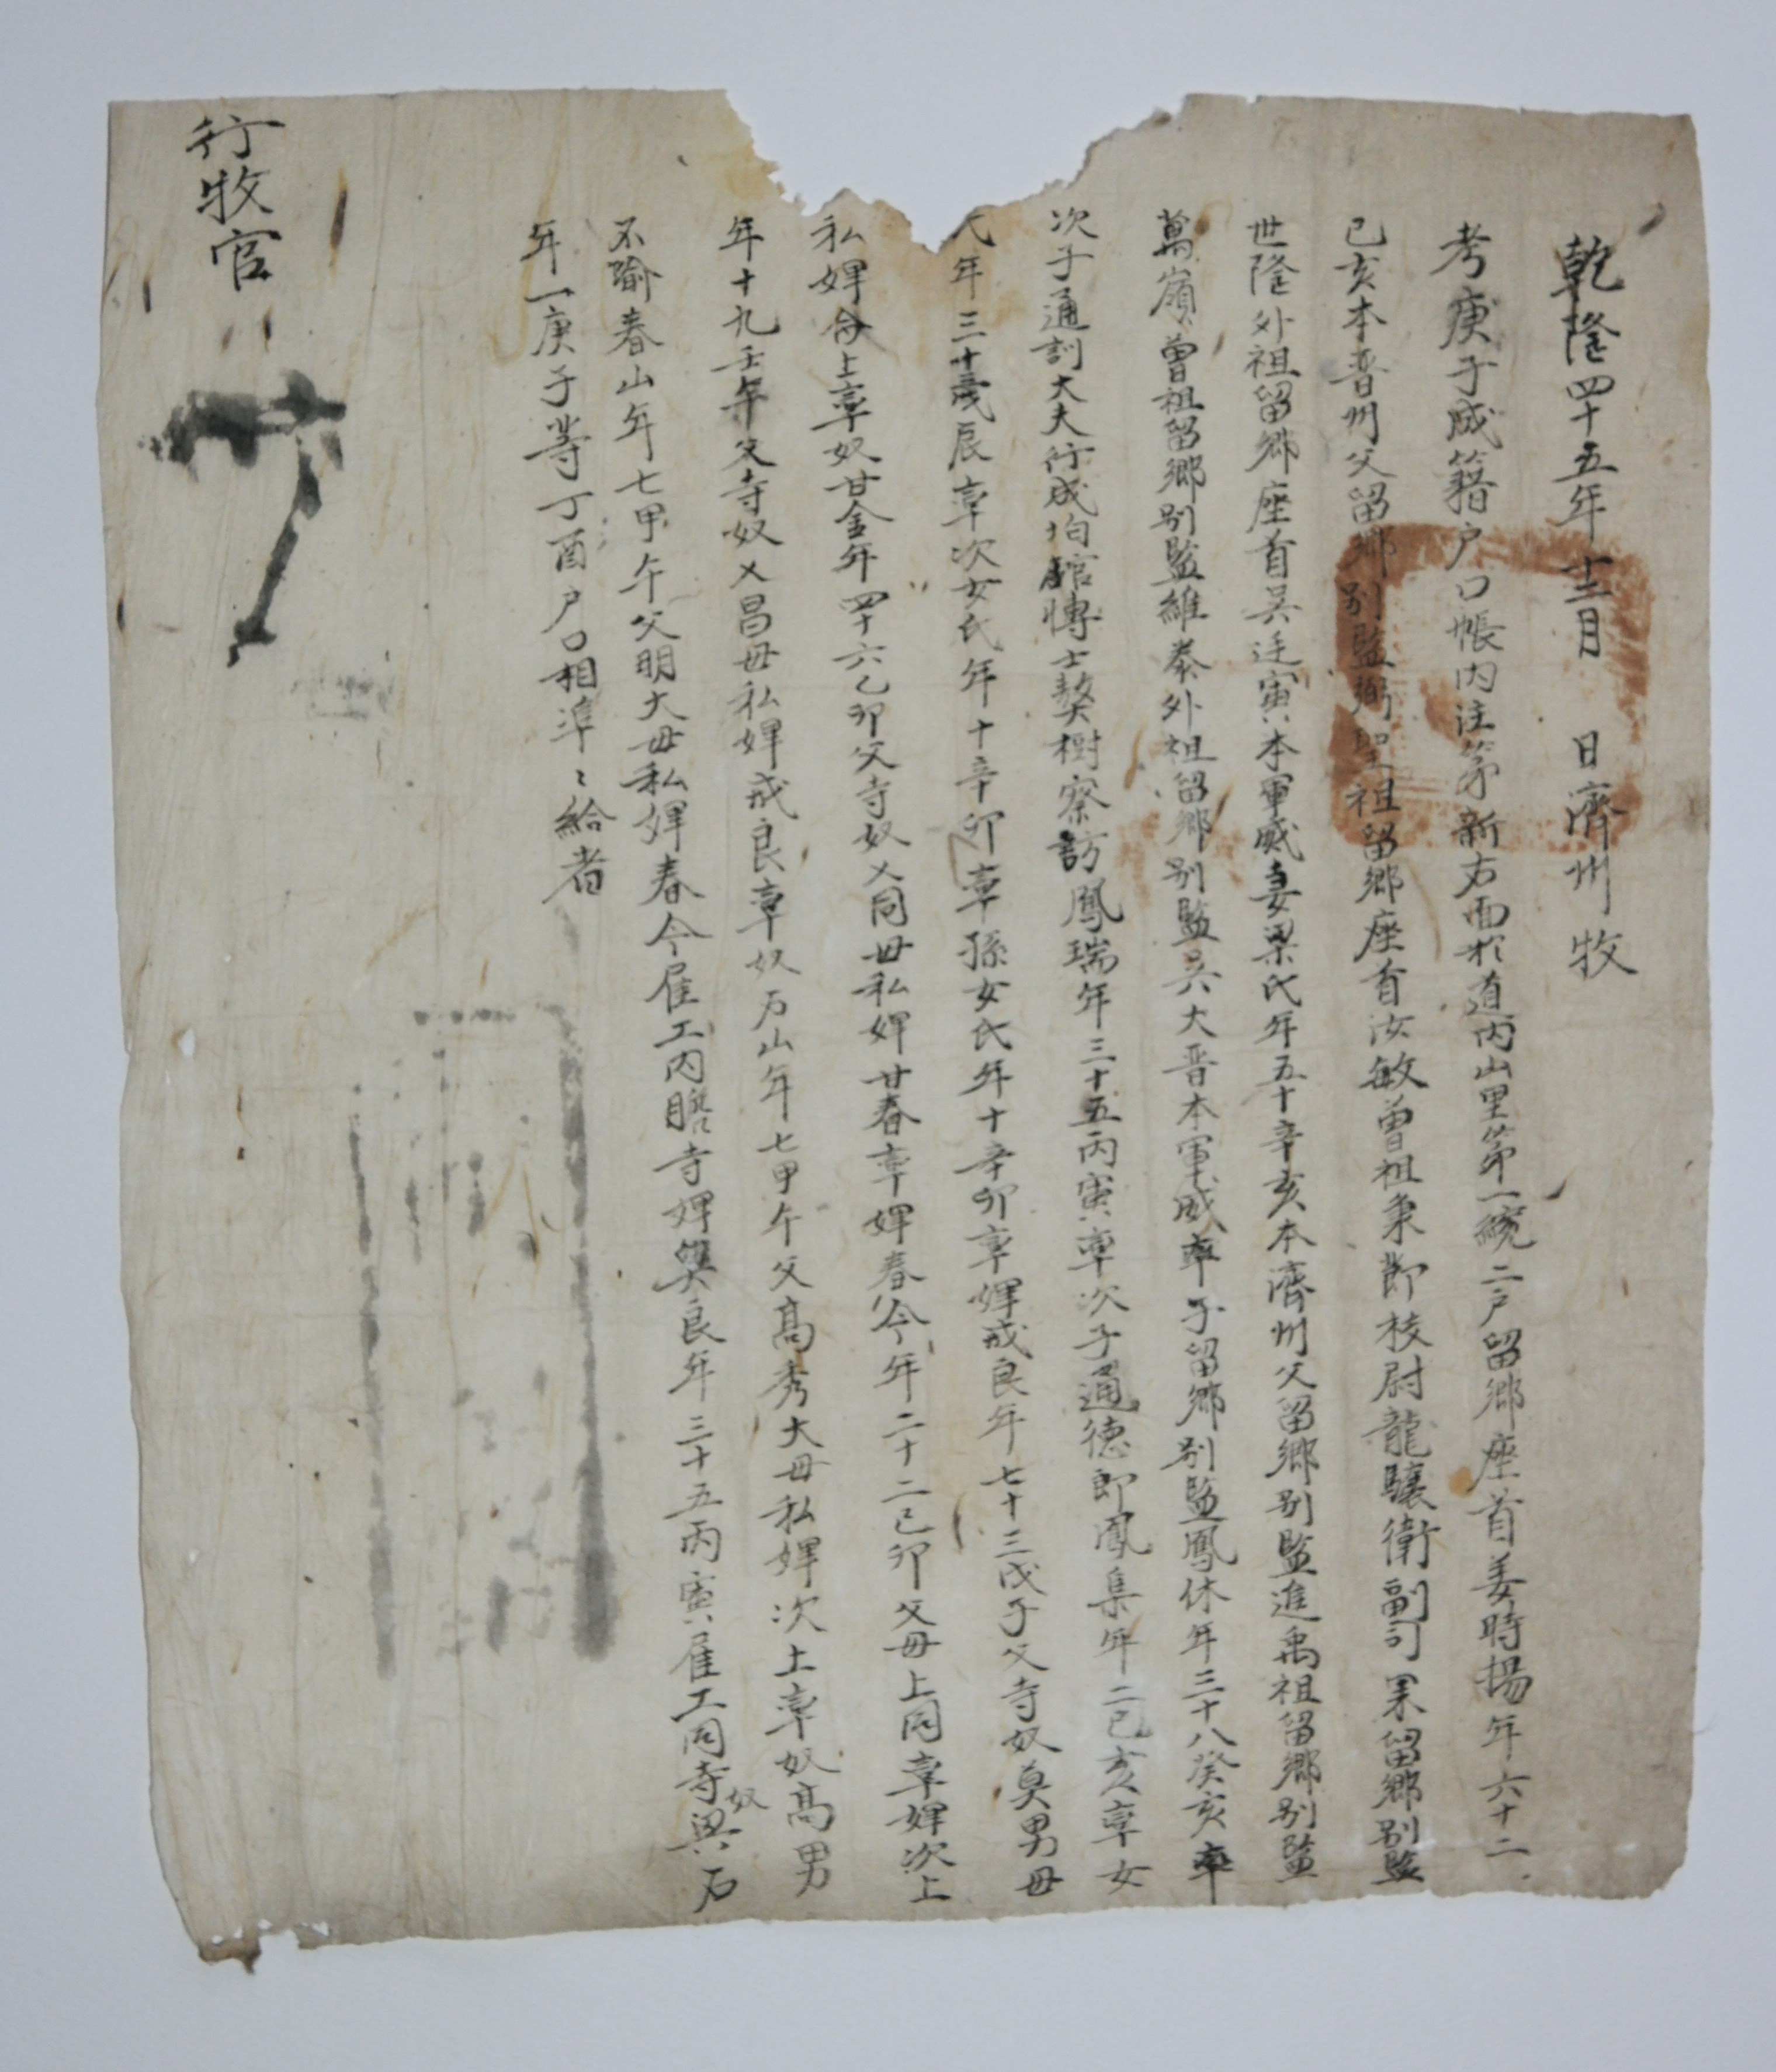 乾隆四十五年十二月 日濟州牧
考庚子成籍户口帳內注第新右面於道內山里第一統二户留鄉座首姜時揚年六十二
己亥本晋州父留鄉別監弼聖祖留鄉座首汝敏曾祖秉節校尉龍驤衛副司果留鄉別監
世隆外祖留鄉座首吳廷寅本軍威妻梁氏年五十辛亥本濟州父留鄉別監進禹祖留鄉別監
萬嶺曾祖留鄉別監維泰外祖留鄉別監吳大晋本軍威率子留鄉別監鳳休年三十八癸亥率
次子通訓大夫行成均館博士獒樹察訪鳳瑞年三十五丙寅率次子通德郎鳳集年二己亥率女
氏年三十戊辰率次女氏年十辛卯率孫女氏年十辛卯率婢戒良年七十三戊子父寺奴莫男母
私婢 上率奴甘金年四十六乙卯父寺奴乂同母私婢甘春率婢春今年二十二己卯父母上同率婢次上
年十九壬午父寺奴乂昌母私婢戒良率奴万山年七甲午父高秀大母私婢次上率奴高男
不喻春山年七甲午父明大母私婢春今雇工內贍寺婢 良年三十五丙寅雇工同寺奴 万
年一庚子等丁酉户口相準〻給者
行牧官